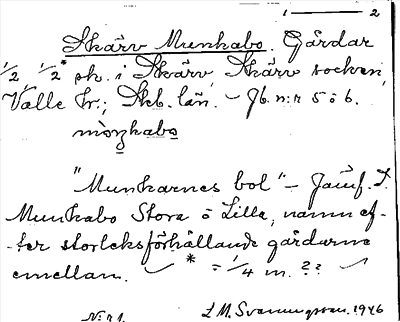 1 — 2
Skärv Munkabo. Gårdar
1/2, 1/2* sk. i Skärv, Skärv socken,
Valle hr.; Skb. län. – Jb. n:r 5 o 6.
"Munkarnes bol" – Jämf. I.
Munkabo Stora o Lilla, namn ef-
-ter storleksförhållande gårdarne
emellan. * = 1/4 m. ??
N:r 1. L. M. Svanungsson. 1946